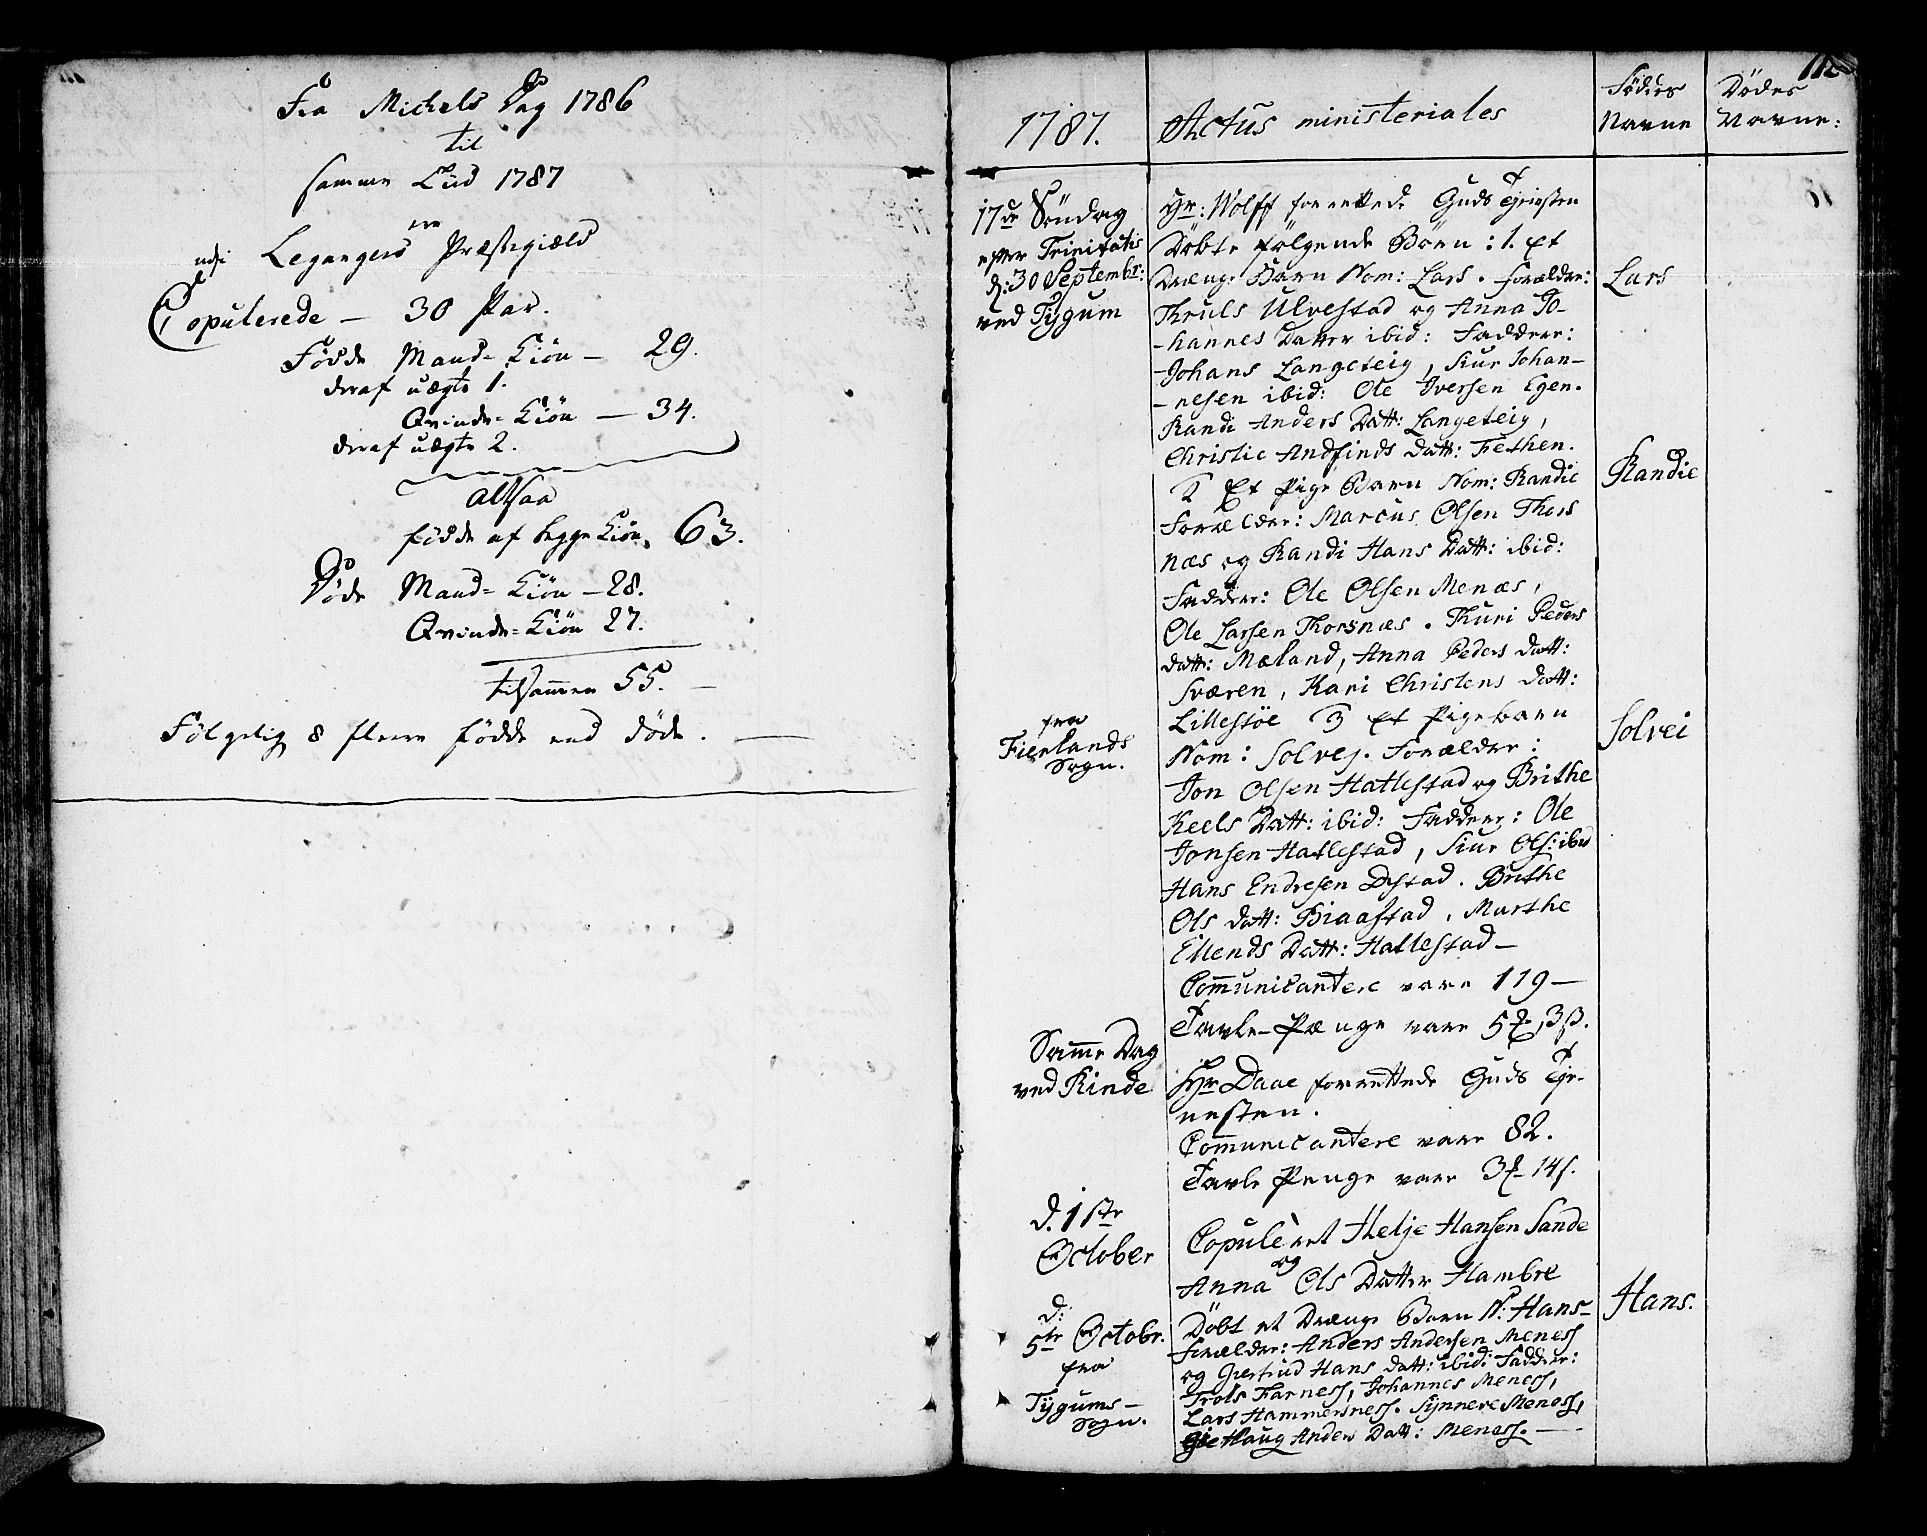 Fra Michels Dag 1786
til
samme Tiid 1787
ere
udi Legangers Præstegiæld
Copulerede — 30 Par.
Födde Mand-Kiön — 29.
deraf uægte 1.
Qvinde-Kiön — 34.
deraf uægte 2.
altsaa
födde af begge Kiön, 63.
Döde Mand-Kiön — 28.
Qvinde-Kiön 27.
tilsamen 55.
Fölgelig 8 flere födde end döde.
112
1787.
Actus ministeriales
Födtes
Navne
Dödes
Navne:
17de Söndag
efter Trinitatis
d: 30 Septembr:
ved Tygum
Hr: Wolff forrettede Guds Tjenesten
Döbte fölgende Börn: 1. Et
Drænge Barn Nom: Lars. Forældre:
Thruls Ulvestad og Anna Jo-
-hannes Datter ibid: Faddere:
Johans Langeteig, Siur Johan-
-nesen ibid: Ole Iversen Egen.
Randi Anders Datt: Langeteig,
Christie Andfinds Datt: Fethen.
Lars
2 Et Pige Barn Nom: Randie
Forældre: Marcus Olsen Thors
næs og Randi Hans Datt: ibid:
Faddere: Ole Olsen Menæs,
Ole Larsen Thorsnæs. Thuri Peders
Datt: Mæland, Anna Peders Datt:
Sværen, Kari Christens Datt:
Lillestöe 3 Et Pigebarn
Randie
fra
Fierlands
Sogn.
Nom: Solvej. Forældre:
Jon Olsen Hatlestad og Brithe
Keels Datt: ibid: Faddere: Ole
Jonsen Hatlestad, Siur Ols: ibid
Hans Endresen Distad. Brithe
Ols Datt: Biaastad, Marthe
Ellends Datt: Hatlestad —
Communicantere vare 119 —
Tavle-Pænge vare 5 , 3 ß.
Solvei
Samme Dag
ved Rinde
Hr Daae forrettede Guds Tje-
nesten.
Communicantere vare 82.
Tavle Penge vare 3 14 s.
d. 1ste
October
Copuleret Helje Hansen Sande
og
Anna Ols Datter Hambre
d:
5te Octobr.
fra
Tygums-
Sogn.
Döbt et Drænge Barn N: Hans-
Forældre: Anders Andersen Meness
og Giertrud Hans Datt: ibid: Faddere:
Trols Farness, Johannes Meness,
Lars Hammersness. Synneve Meness,
Giethaug Anders Datt: Meness. —
Hans.